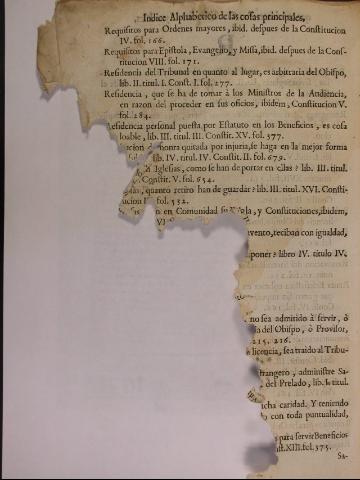 Indice Alphabetico de las cosas principales,
Requisitos para Ordenes mayores, ibid. despues de la Constitucion
IV. fol. 166.
Requisitos para Epistola, Evangelio, y Missa, ibid. despues de la Cons-
titucion VIII. fol. 171.
Residencia del Tribunal en quanto al lugar, es arbitraria del Obispo,
lib. II. titul. I. Const. I. fol. 277.
Residencia, que se ha de tomar à los Ministros de la Audiencia,
en razon del proceder en sus oficios, ibidem, Constitucion V.
fol. 284.
Residencia personal puesta por Estatuto en los Beneficios, es cosa
loable, lib. III. titul. III. Constit. XV. fol. 377.
honra quitada por injuria, se haga en la mejor forma
lib. IV. titul. IV. Constit. II. fol. 679.
Iglesias, como se han de portar en ellas? lib. III. titul.
Constit. V. fol. 654.
quanto retiro han de guardar? lib. III. titul. XVI. Consti-
fol. 532.
en Comunidad su Regla, y Constituciones, ibidem,
vento, reciban con igualdad,
poner? libro IV. titulo IV.
no sea admitido à servir, ò
del Obispo, ò Provisor,
215. 216.
licencia, sea traido al Tribu-
trangero, administre Sa-
del Prelado, lib. I. titul.
cha caridad. Y teniendo
con toda puntualidad,
para servir Beneficios
st. XIII. fol. 375.
Sa-